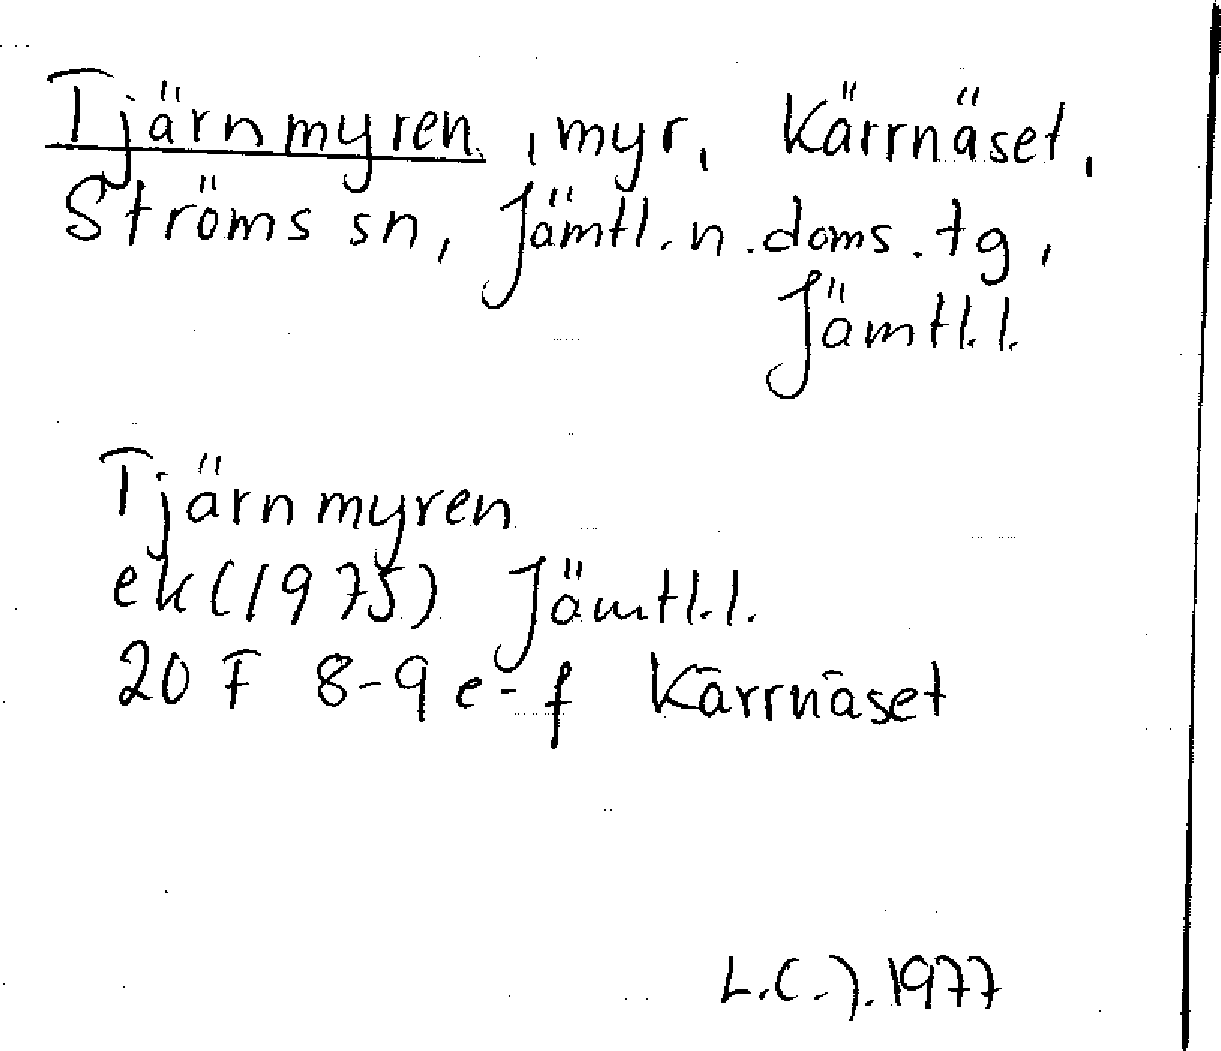 Tjärnmyren, myr, Kärrnäset,
Ströms sn, Jämtl. n. doms. tg,
Jämtl. l.
Tjärnmyren
ek (1975) Jämtl. l.
20 F 8-9 e-f Kärrnäset
1977